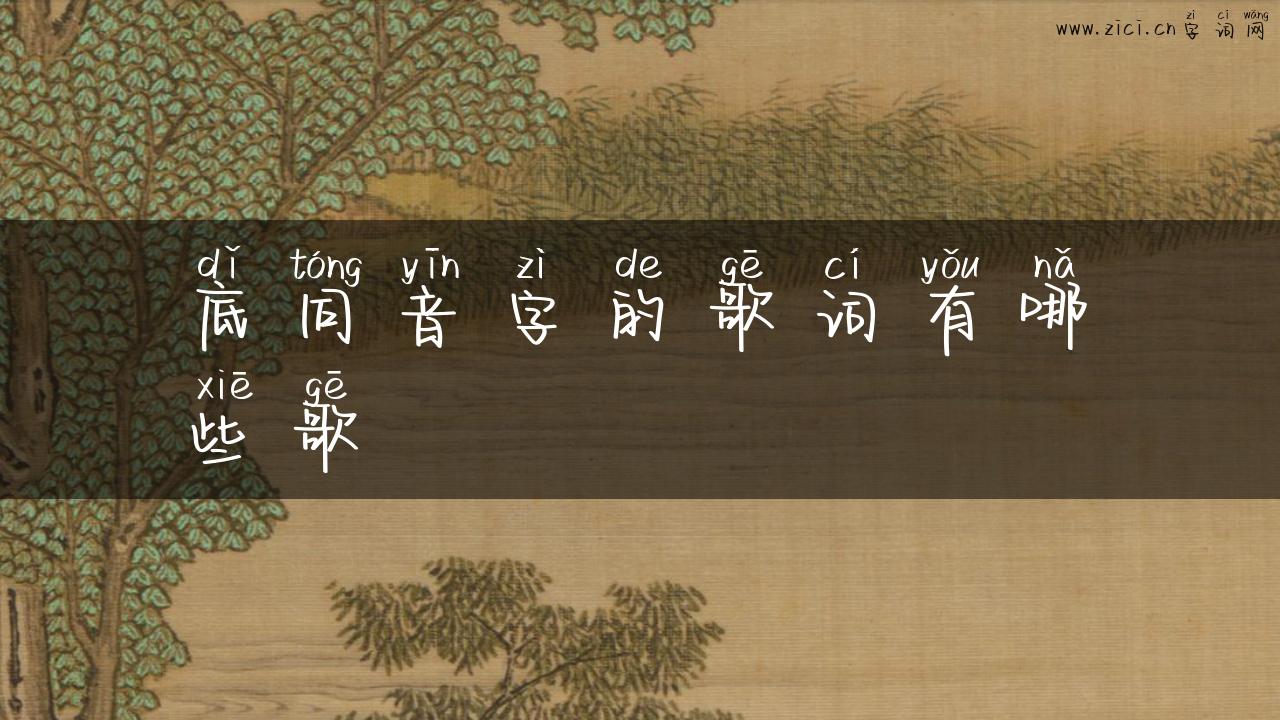 zì cí wǎng
www.zici.cn字词网
dǐ tóng yīn zì de gē cí yǒu nǎ
底同音字的歌词有哪
xiē gē
些歌